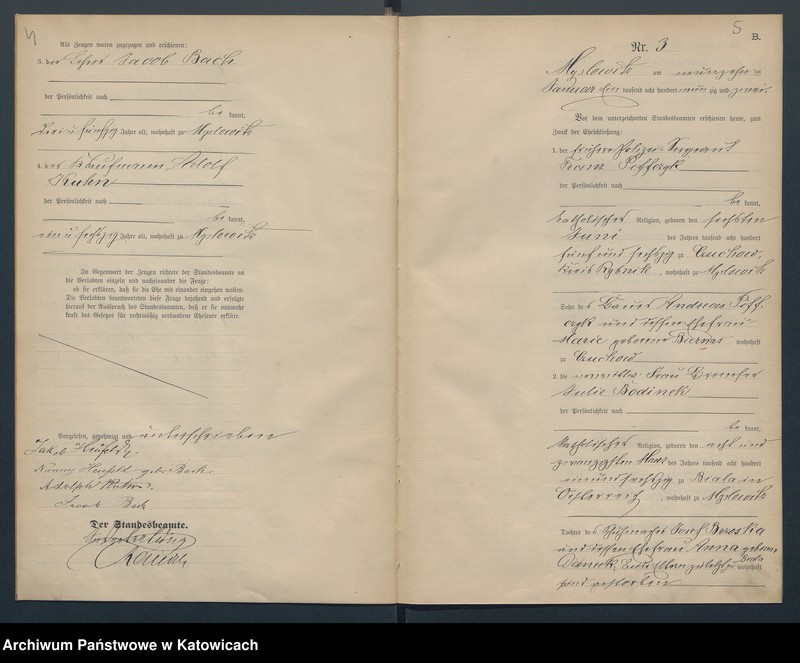 4
Als Zeugen waren zugezogen und erschienen:
3. der Lehrer Jacob Bach
der Persönlichkeit nach
be kannt,
drei u fünfzig Jahre alt, wohnhaft zu Myslowitz
4. der Kaufmann Adolf
Kuhn
der Persönlichkeit nach
be kannt,
ein u sechszig Jahre alt, wohnhaft zu Myslowitz
In Gegenwart der Zeugen richtete der Standesbeamte an
die Verlobten einzeln und nacheinander die Frage:
ob sie erklären, daß sie die Ehe mit einander eingehen wollen.
Die Verlobten beantworteten diese Frage bejahend und erfolgte
hierauf der Ausspruch des Standesbeamten, daß er sie nunmehr
kraft des Gesetzes für rechtmäßig verbundene Eheleute erkläre.
Vorgelesen, genehmigt und unterschrieben
Jakob
Nanny geb. Bach.
Adolph Kuhn.
Jacob Bach
Der Standesbeamte.
In Vertretung
5
B.
Nr. 3
Myslowitz am neunzehn
Januar Ein tausend acht hundert neun zig und zwei.
Vor dem unterzeichneten Standesbeamten erschienen heute, zum
Zweck der Eheschließung:
1. der frühere Polizei-Sergeant
Franz
der Persönlichkeit nach
be kannt,
katholischer Religion, geboren den sechsten
Juni des Jahres tausend acht hundert
fünf und sechszig zu Czuchow,
Kreis Rybnik, wohnhaft zu Myslowitz
Sohn des Bauer Andreas
und dessen Ehefrau
Marie geborene Biernas wohnhaft
zu Czuchow
2. die Frau
Julie Bodinek
der Persönlichkeit nach
be kannt,
katholischer Religion, geboren den acht und
zwanzigsten des Jahres tausend acht hundert
ein und sechszig zu Biala in
Österreich, wohnhaft zu Myslowitz
Tochter des Schuhmacher Josef
und dessen Ehefrau Anna geborene
Danek, zuletzt zu Biala wohnhaft
sind gestorben
Archiwum Państwowe w Katowicach